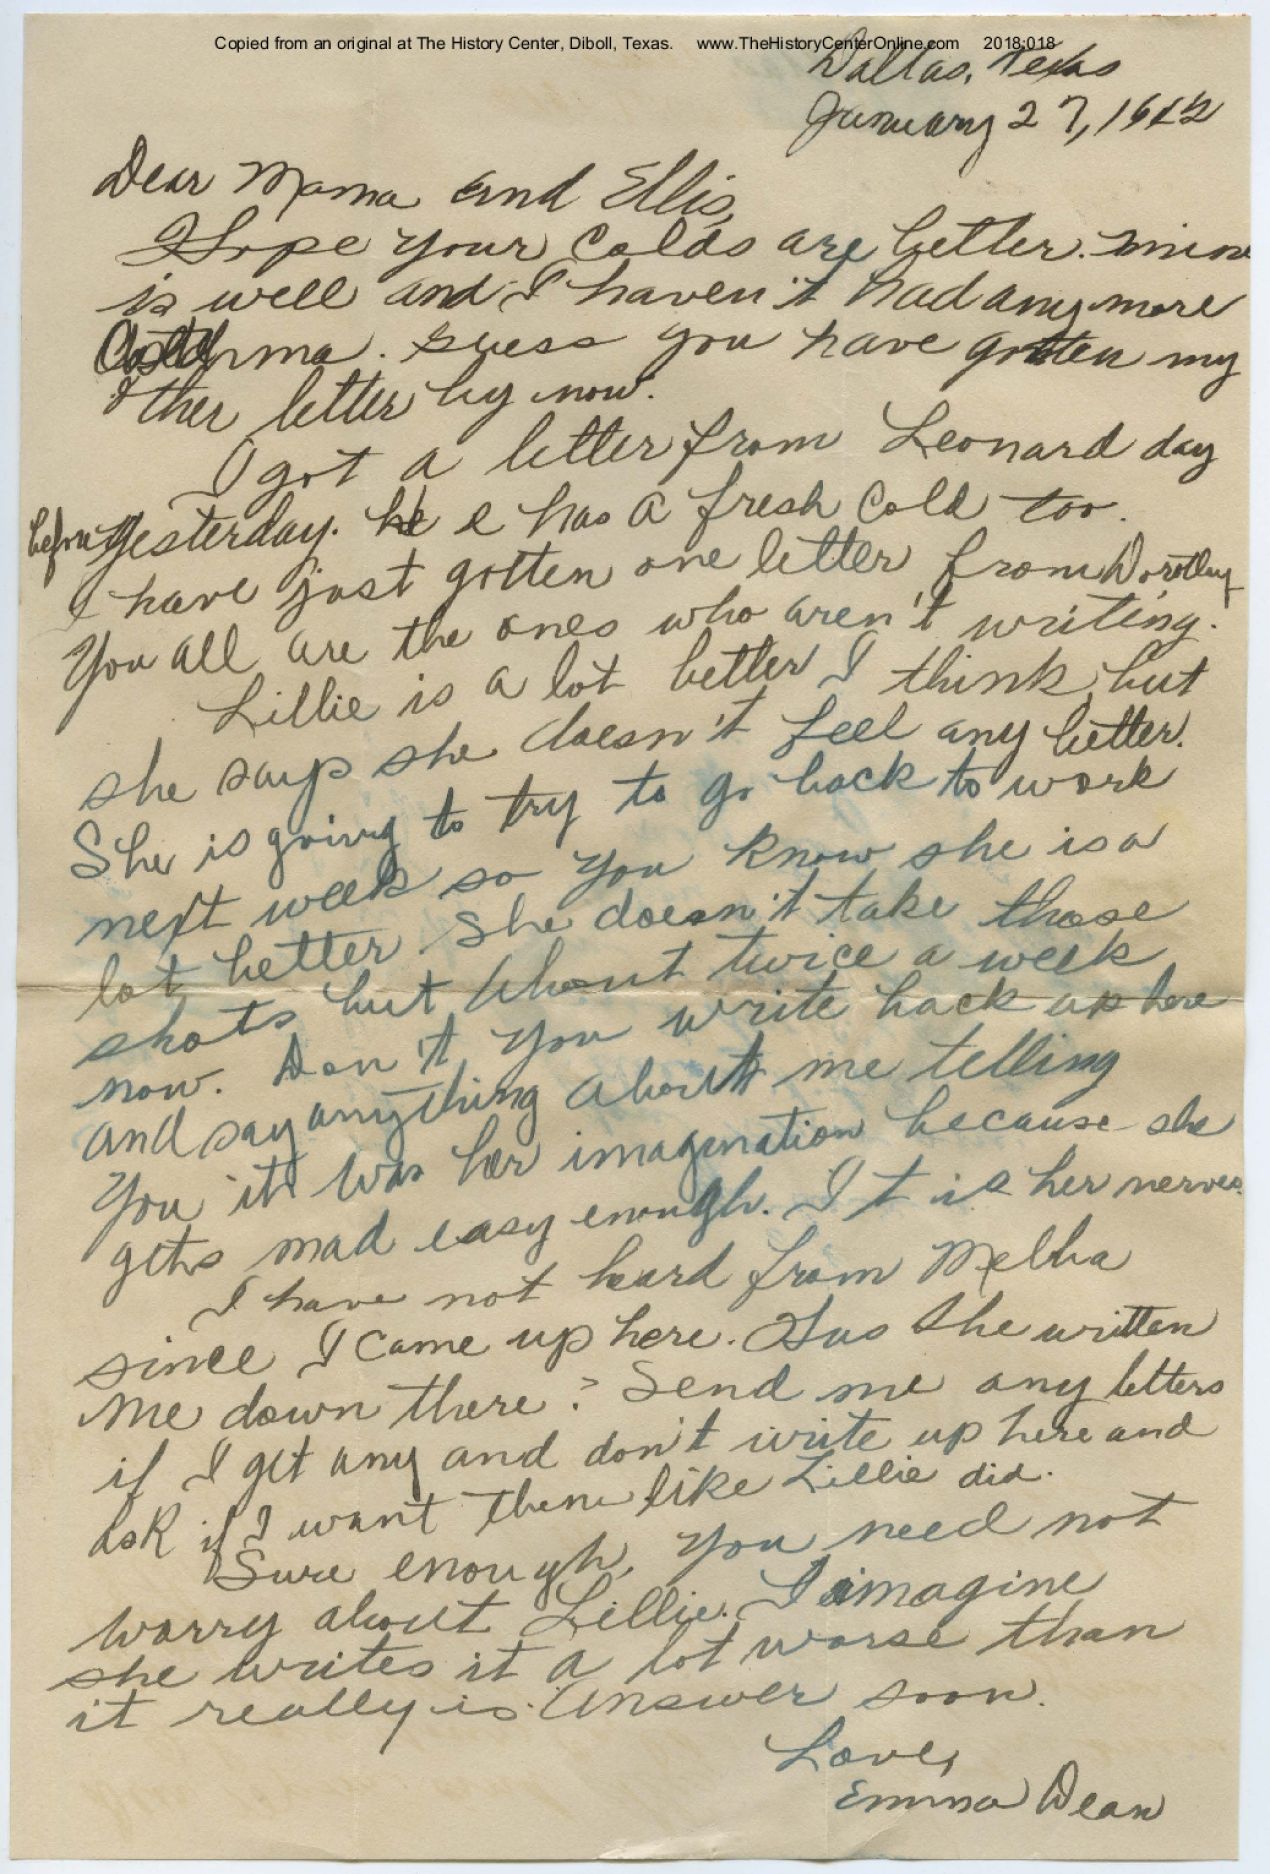 Copied from an original at The History Center, Diboll, Texas. www.TheHistoryCenterOnline.com 2018:018
Dallas, Texas
January 27,
Dear Mama and Ellis,
Hope your colds are better. Mine
is well and I haven't had any more
Asthma. Guess you have gotten my
other letter by now.
I got a letter from Leonard day
before yesterday. he has a fresh cold too.
I have just gotten one letter from Dorothy
You all are the ones who aren't writing.
Lillie is a lot better I think, but
she says she doesn't feel any better.
She is going to try to go back to work
next week so you know she is a
lot better. She doesn't take those
shots but about twice a week
now. Don't you write back up here
and say anything about me telling
you it was her imagination because she
gets mad easy enough. It is her nerves.
I have not heard from Melba
since I came up here. Has she written
me down there? Send me any letters
if I get any and don't write up here and
ask if I want them like Lillie did.
Sure enough, you need not
worry about Lillie. I imagine
she writes it a lot worse than
it really is. Answer soon.
Love,
Emma Dean